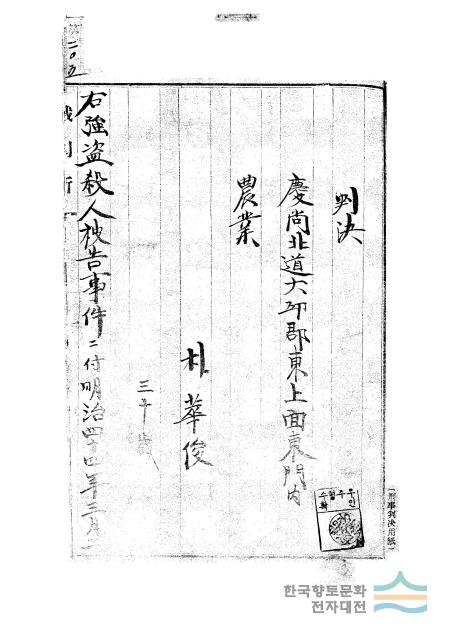 判決
慶尚北道大邱郡東上面東門内
農業
朴華俊
三十歳
右強盗殺人被告事件ニ付明治四十四年三月
刑事判決用紙
한국향토문화
전자대전